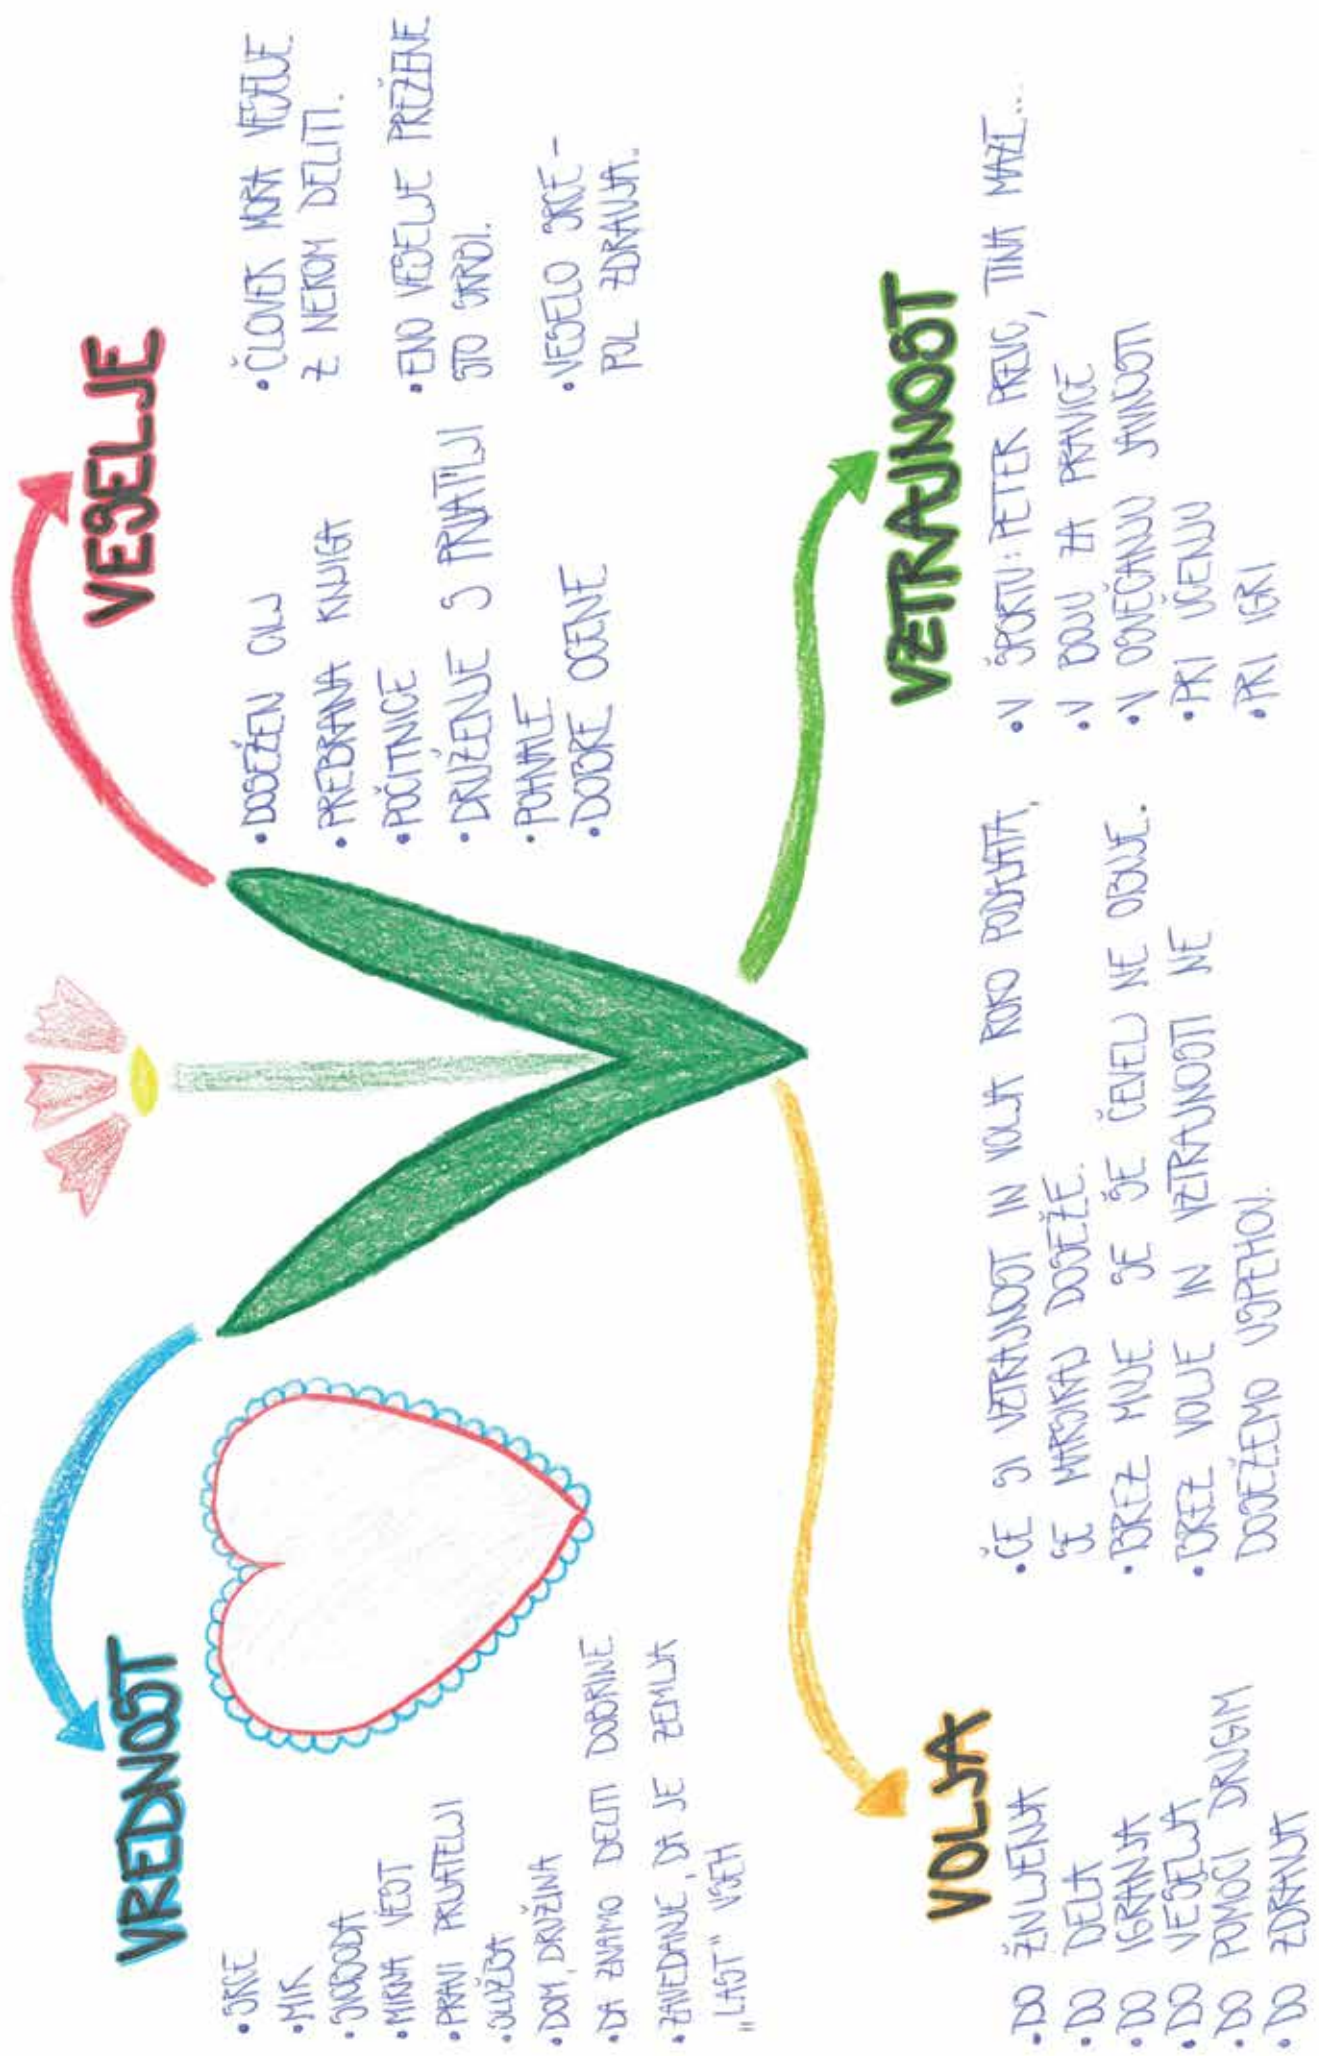 VREDNOST
• SRCE
• MIR
• SVOBODA
• MIRNA VEST
• PRAVI PRIJATELJI
• SLUŽBA
• DOM, DRUŽINA
• DA ZNAMO DELITI DOBRINE.
• ZAVEDANJE, DA JE ZEMLJA
"LAST" VSEH
VESELJE
• DOSEŽEN CILJ
• PREBRANA KNJIGA
• POČITNICE
• DRUŽENJE S PRIJATELJI
• POHVALE
• DOBRE OCENE
• ČLOVEK MORA VESELJE
Z NEKOM DELITI.
• ENO VESELJE PREŽENE
STO SKRBI.
• VESELO SRCE –
POL ZDRAVJA.
VOLJA
• DO ŽIVLJENJA
• DO DELA
• DO IGRANJA
• DO VESELJA
• DO POMOČI DRUGIM
• DO ZDRAVJA
• ČE SI VZTRAJNOST IN VOLJA ROKO PODAJATA,
SE MARSIKAJ DOSEŽE.
• BREZ MUJE SE ŠE ČEVELJ NE OBUJE.
• BREZ VOLJE IN VZTRAJNOSTI NE
DOSEŽEMO USPEHOV.
VZTRAJNOST
• V ŠPORTU: PETER PREVC, TINA MAZE...
• V BOJU ZA PRAVICE
• V OSVEŠČANJU JAVNOSTI
• PRI UČENJU
• PRI IGRI